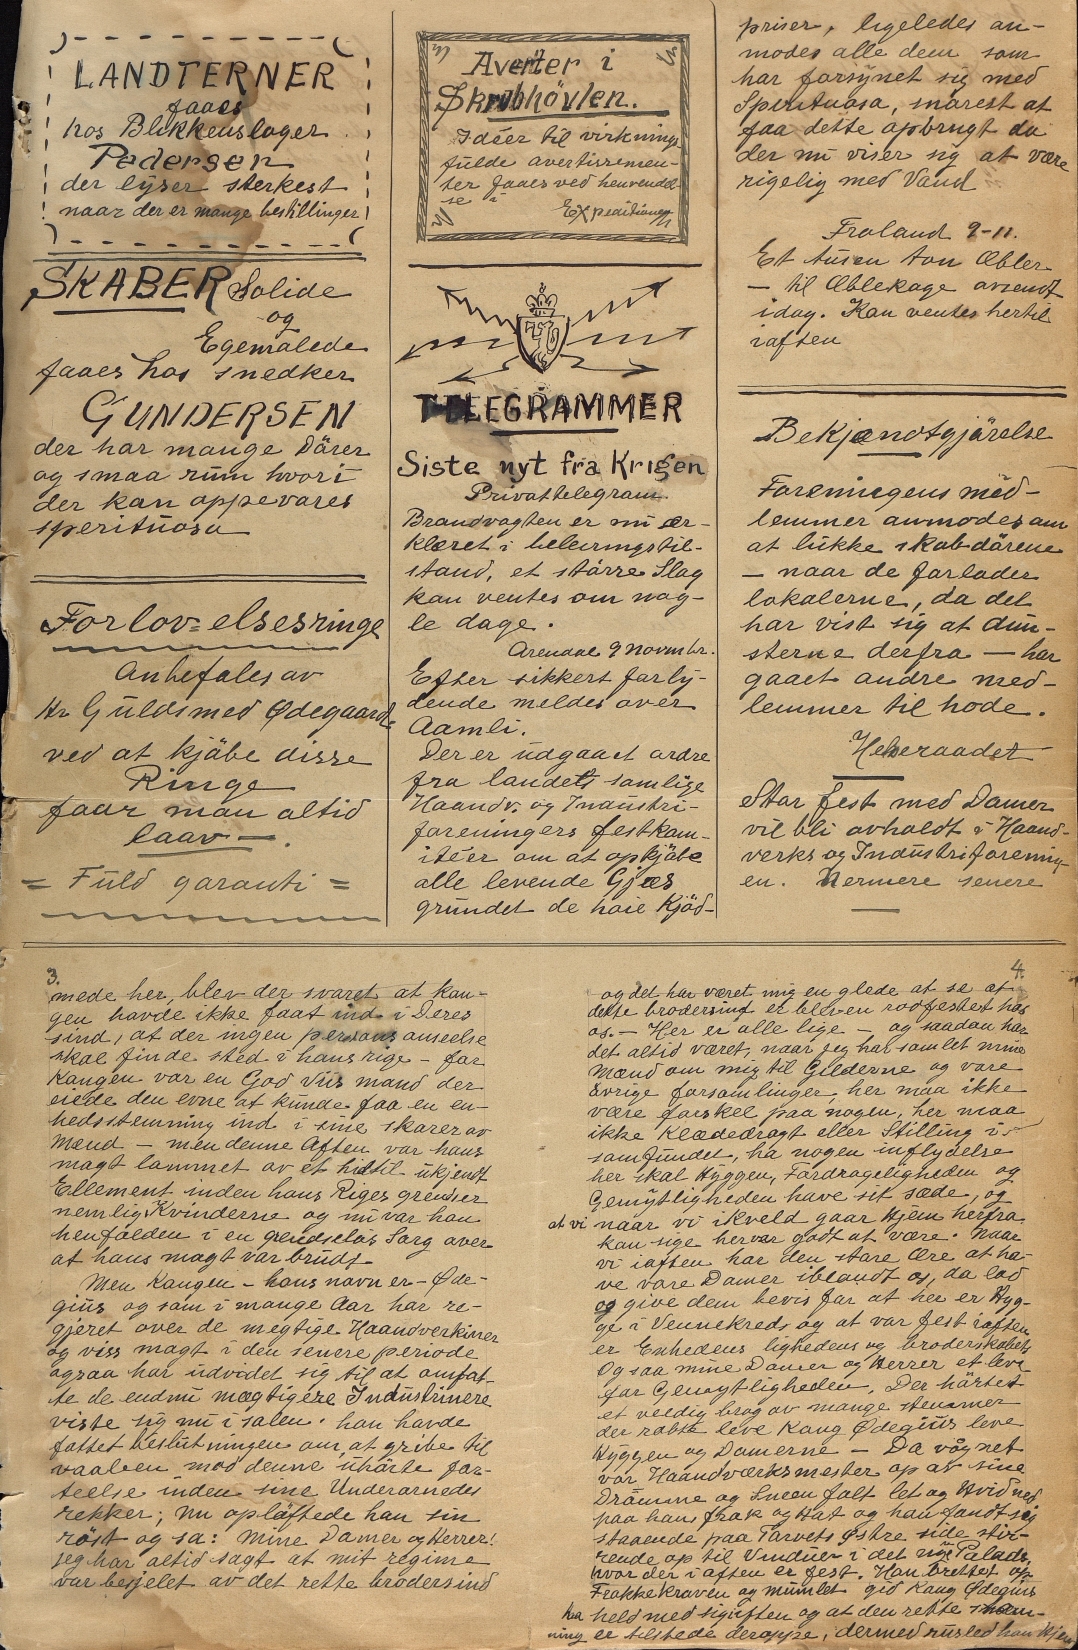 LANDTERNER
faaes
hos Blikkenslager
Pedersen
der lyser sterkest
naar der er mange bestillinger
SKABER Solide
og
Egemalede
faaes hos snedker
GUNDERSEN
der har mange Dörer
og smaa rum hvori
der kan oppevares
sperituosa
Forlov=elsesringe
Anbefales av
Hr Guldsmed Ødegaard
ved at kjöbe disse
Ringe
faar man altid
laav—.
= Fuld garanti =
Averter i
Skrubhövlen.
Idéer til virknings
fulde avertissemen-
ter faaes ved henvendel
se i Expeditionen
TELEGRAMMER
Siste nyt fra Krigen
Privattelegram.
Brandvagten er nu ær-
klæret i beleiringstil-
stand, et större Slag
kan ventes om nog-
le dage.
Arendal 9 novmbr.
Efter sikkert forly-
dende meldes over
Aamli.
Der er udgaaet ordre
fra landets samlige
Haandv. og Industri-
foreningers festkom-
itéer om at opkjöbe
alle levende Gjæs
grundet de höie Kjöd-
priser, ligeledes an-
modes alle dem som
har forsynet sig med
Spirituosa, snarest at
faa dette opbrugt da
der nu viser sig at være
rigelig med Vand
Froland 9-11.
Et tusen ton Æbler
— til Æblekage avsendt
idag. Kan ventes hertil
iaften
Bekjendtgjörelse
Foreningens med-
lemmer anmodes om
at lukke skabdörene
— naar de forlader
lokalerne, da det
har vist sig at dun-
sterne derfra — har
gaaet andre med-
lemmer til hode.
Helseraadet
Stor fest med Damer
vil bli avholdt i Haand-
verks og Industriforening
en. Nermere senere
3.
mede her, blev der svaret at kon-
gen havde ikke faat ind i Deres
sind, at der ingen persons anseelse
skal finde sted i hans rige – for
Kongen var en God Viis mand der
eiede den evne at kunde faa en en-
hedsstemning ind i sine skarer av
Mænd – men denne Aften var hans
magt lammet av et hidtil ukjendt
Ellement inden hans Riges grendser
nemlig Kvinderne og nu var han
henfalden i en grendselös Sorg over
at hans magt var brudt.
Men Kongen – hans navn er – Øde-
gius og som i mange Aar har re-
gjeret over de megtige Haandverkiner
og viss magt i den senere periode
ogsaa har udvidet sig til at omfat-
te de endnu mægtigere Industrinere
viste sig nu i salen. han havde
fattet beslutningen om at gribe til
vaaben mod denne uhörte for-
teelse inden sine Underornedes
rekker; Nu oplöftede han sin
röst og sa: Mine Damer og Herrer!
jeg har altid sagt at mit regime
var besjelet av det rette brodersind
4.
og det har været mig en glede at se at
dette brodersind er bleven rodfestet hos
os. – Her er alle lige –, og saadan har
det altid været, naar jeg har samlet mine
Mænd om mig til Gilderne og vore
övrige forsamlinger, her maa ikke
være forskel paa nogen, her maa
ikke Klædedragt eller Stilling i
samfundet, ha nogen inflydelse
her skal Hyggen, Fordrageligheden og
Gemytligheden have sit sæde, og
at vi naar vi ikveld gaar Hjem herfra
kan sige her var godt at være. Naar
vi iaften har den store Ære at ha-
ve vore Damer iblandt os, da lad
og give dem bevis for at her er Hyg-
ge i Vennekreds og at vor fest iaften
er Enhedens lighedens og broderskabets
Og saa mine Damer og Herrer et leve
for Gemytligheden. Der hörtes
et veldig brag av mange stemmer
der robte leve Kong Ødegius leve
Hyggen og Damerne – Da vågnet
vor Haandværksmester op av sine
Drömme og Sneen falt let og Hvid ned
paa hans frak og Hat og han fandt sig
staaende paa Torvets Østre side stir-
rende op til Vinduer i det nye Palads,
hvor der i aften er fest. Han brettet op
Frakkekraven og mumlet gid Kong Ødegius
ha held med sigiften og at den rette stem-
ning er tilstede deroppe, dermed rusled han Hjem